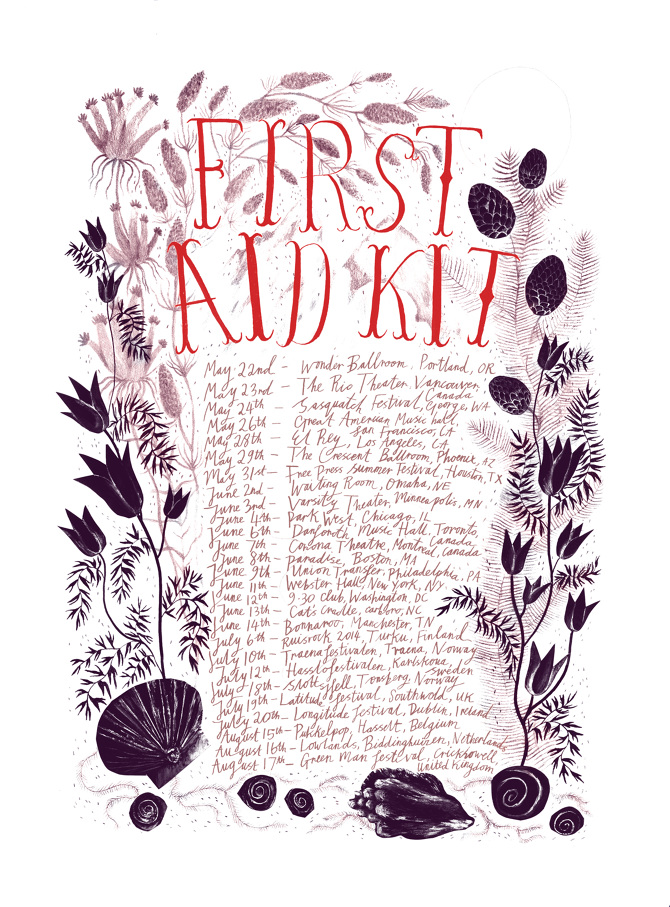 FIRST
AID KIT
May 22nd - Wonder Ballroom, Portland, OR
May 23rd - The Rio Theater Vancouver, Canada
May 24th - Sasquatch Festival, George, WA
May 26th - Great American Music hall, San Francisco, CA
May 28th - El Rey, Los Angeles, CA
May 29th - The Crescent Ballroom, Phoenix, AZ
May 31st - Free Press Summer Festival, Houston, TX
June 2nd - Waiting Room, Omaha, NE
June 3rd - Varsity Theater, Minneapolis, MN
June 4th - Park West, Chicago, IL
June 6th - Danforth Music Hall, Toronto, Canada
June 7th - Corona Theatre, Montreal, Canada
June 8th - Paradise, Boston, MA
June 9th - Union Transfer, Philadelphia, PA
June 11th - Webster Hall, New York, NY
June 12th - 9:30 Club, Washington, DC
June 13th - Cat's Cradle, Carrboro, NC
June 14th - Bonnaroo, Manchester, TN
July 6th - Ruisrock 2014, Turku, Finland
July 10th - Traenafestivalen, Traena, Norway
July 12th - Hasslofestivalen, Karlskoua, Sweden
July 18th - Slottsfjell, Tonsberg, Norway
July 19th - Latitude Festival, Southwold, UK
July 20th - Longitude Festival, Dublin, Ireland
August 15th - Pukkelpop, Hasselt, Belgium
August 16th - Lowlands, Biddinghuizen, Netherlands
August 17th - Green Man Festival, Crickhowell United Kingdom